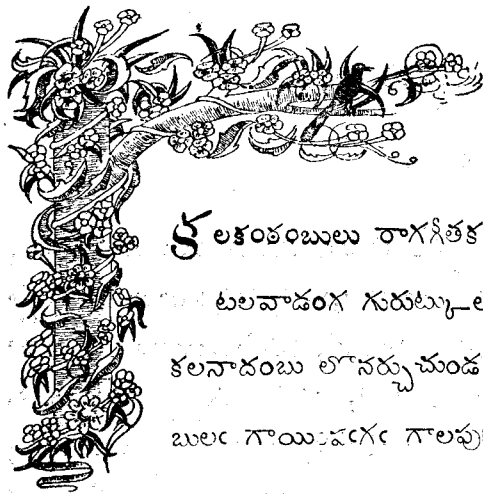 కలకంఠంబులు రాగగీతక
టలవాడంగ గురుట్కు
కలనాదంబు లొనర్చుచుండ
బులఁ గాయి పఁగఁ గాలపు